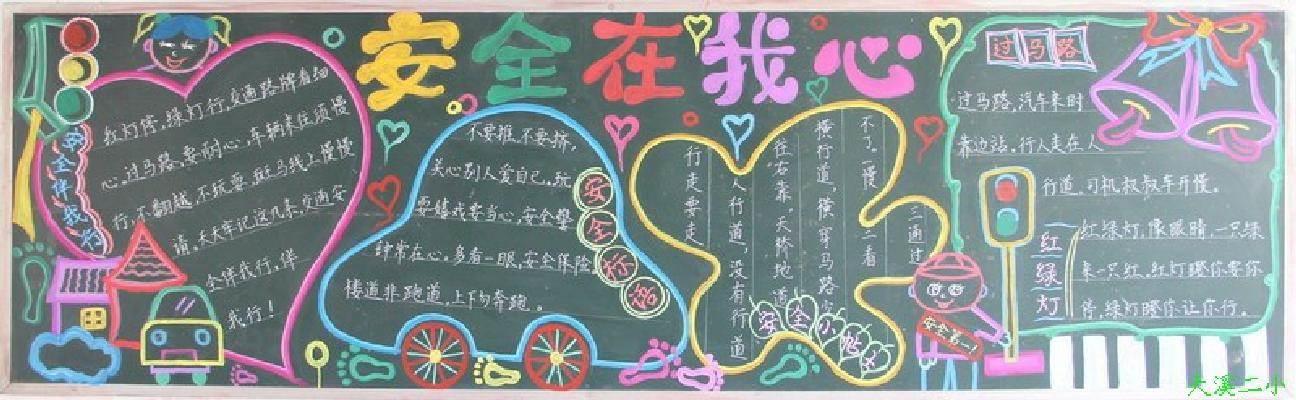 安全在我心
安全伴我行
红灯停,绿灯行,交通路牌看细
心。过马路,要耐心,车辆来往须慢
行,不翻越,不玩耍,斑马线上慢慢
请,天天牢记这几条,交通安
全伴我行,伴
我行!
不要推,不要挤,
关心别人爱自己。玩
耍嬉戏要当心,安全警
钟常在心。多看一眼,安全保险
楼道非跑道,上下勿奔跑。
安全标语
行走要走
人行道,没有行道
往右靠。天桥地道
横行道,横穿马路
不了。一慢二看
三通过
安全小帖士
过马路
过马路,汽车来时
靠边站。行人走在人
行道,司机叔叔车开慢。
红绿灯
红绿灯,像眼睛,一只绿
来一只红,红灯瞪你要你
停,绿灯瞪你让你行。
安全第一!
大溪二小